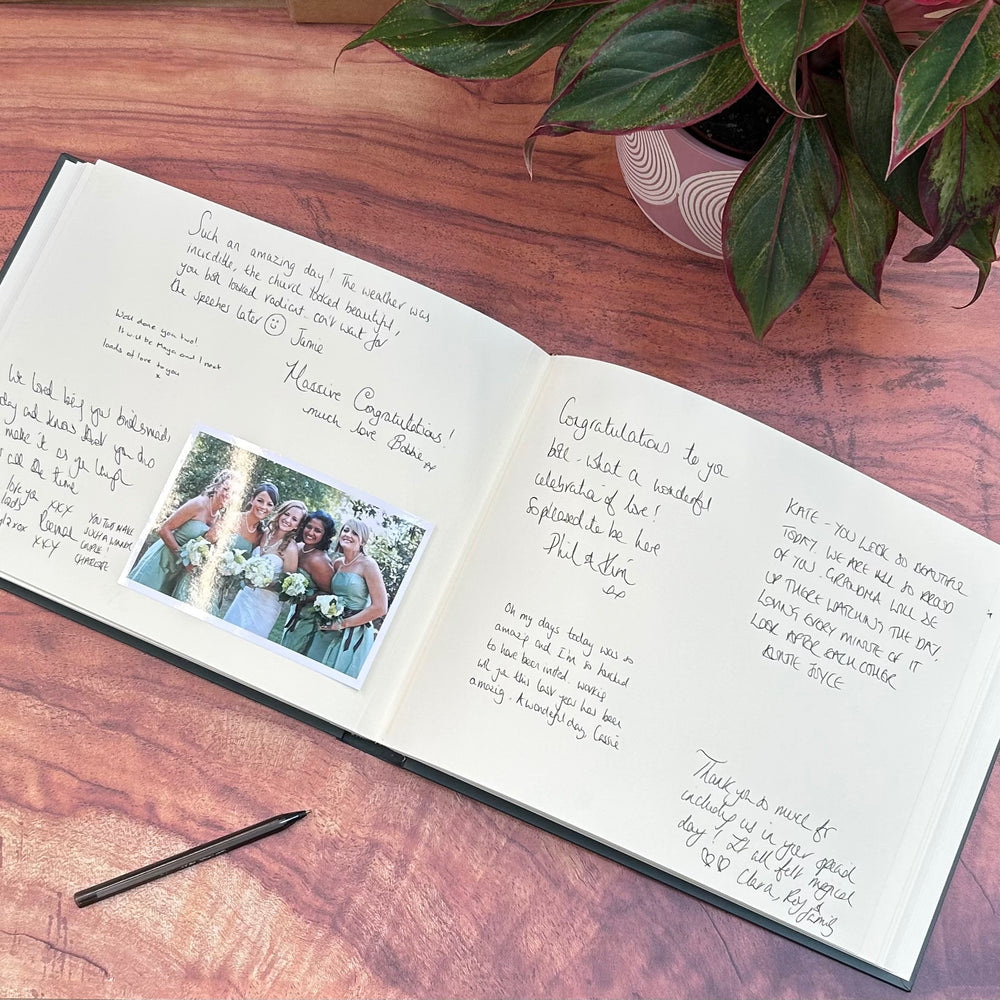 Such an amazing day! The weather was
incredible, the church looked beautiful,
you both looked radiant. can't wait for
the speeches later Jamie
Well done you two!
It will be Maya and I next
loads of love to you
x
Massive Congratulations!
much love Bobbie xx
We loved being your bridesmaids
day and know that you two
make it as you laugh
all the time
love you xxx
xxx
YOU TWO MAKE
SUCH A WINNER
COUPLE!
CHARLOTTE
Congratulations to you
both - what a wonderful
celebration of love!
So pleased to be here
Phil & Kim
xx
Oh my days today was so
amazing and I'm so honoured
to have been invited. working
with you this last year has been
amazing. A wonderful day, Cassie
KATE - YOU LOOK SO BEAUTIFUL
TODAY. WE ARE ALL SO PROUD
OF YOU. GRANDMA WILL BE
UP THERE WATCHING THE DAY,
LOVING EVERY MINUTE OF IT
LOOK AFTER EACH OTHER
AUNTIE JOYCE
Thank you so much for
including us in your special
day! It all felt magical
♡♡ Clara, Roy &
family